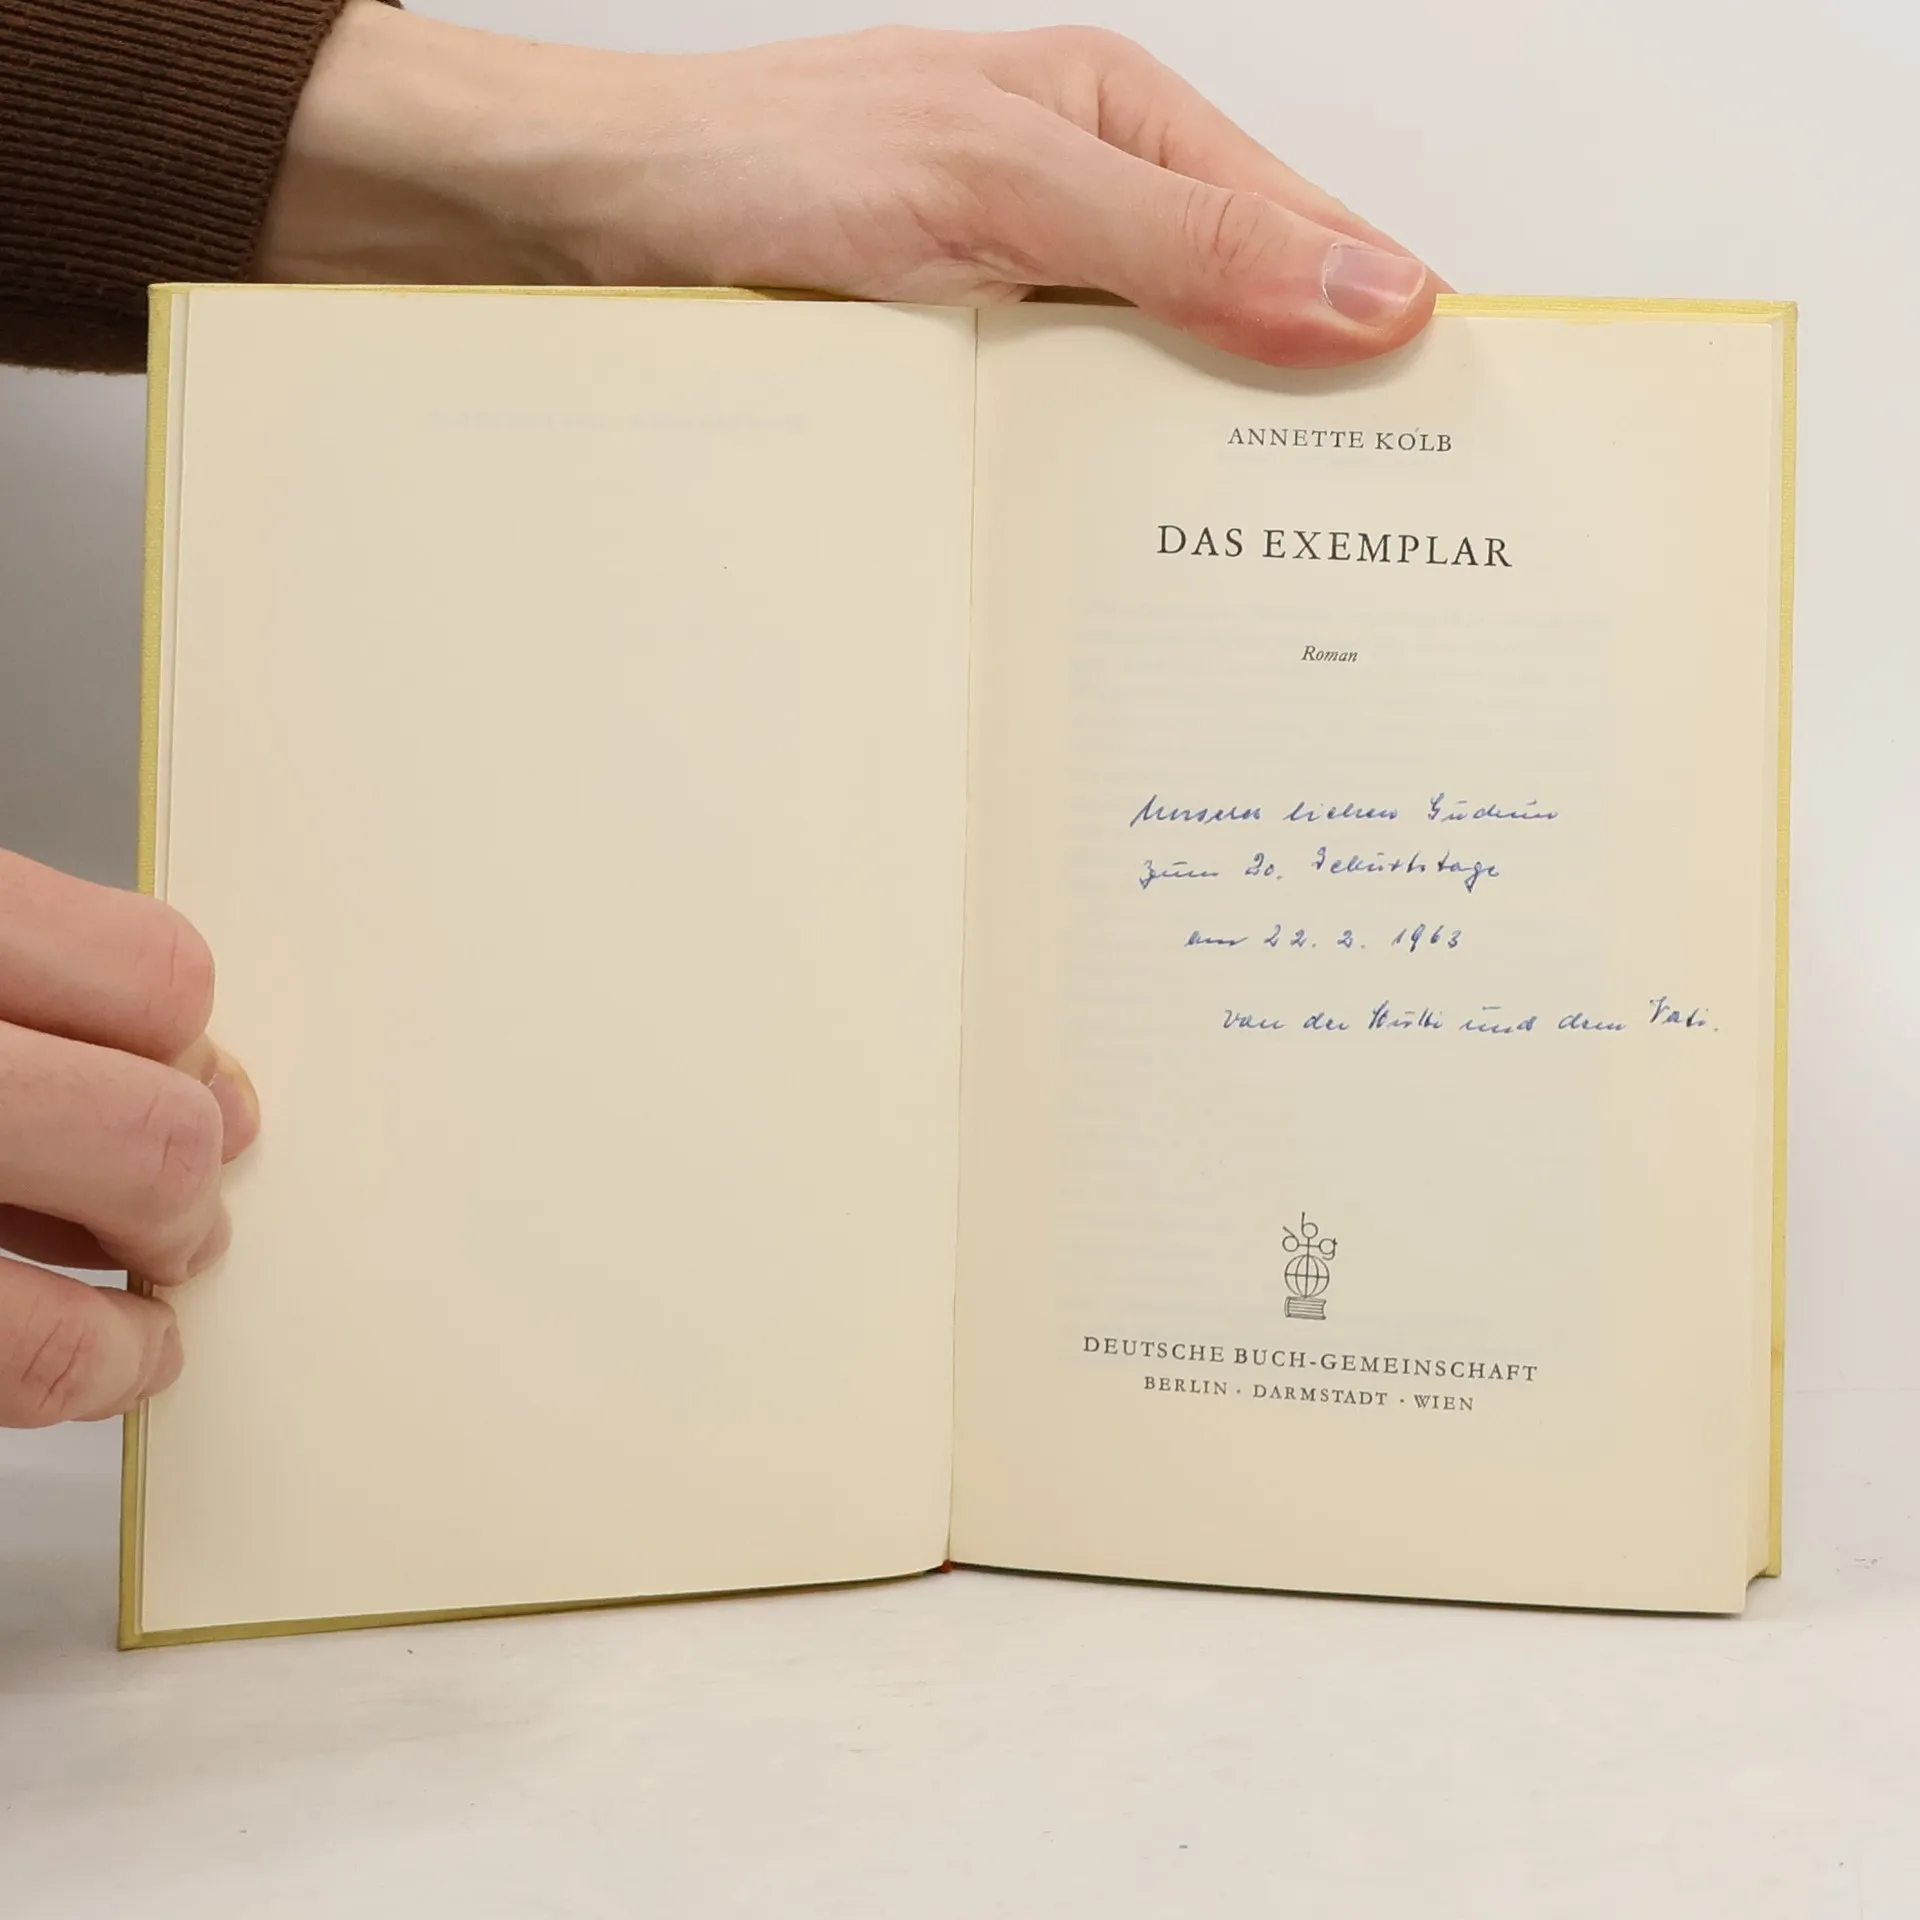 ANNETTE KOLB
DAS EXEMPLAR
Roman
Unserer lieben Gudrun
zum 20. Geburtstage
am 22. 2. 1963
von der Mutti und dem Vati.
dbg
DEUTSCHE BUCH-GEMEINSCHAFT
BERLIN · DARMSTADT · WIEN